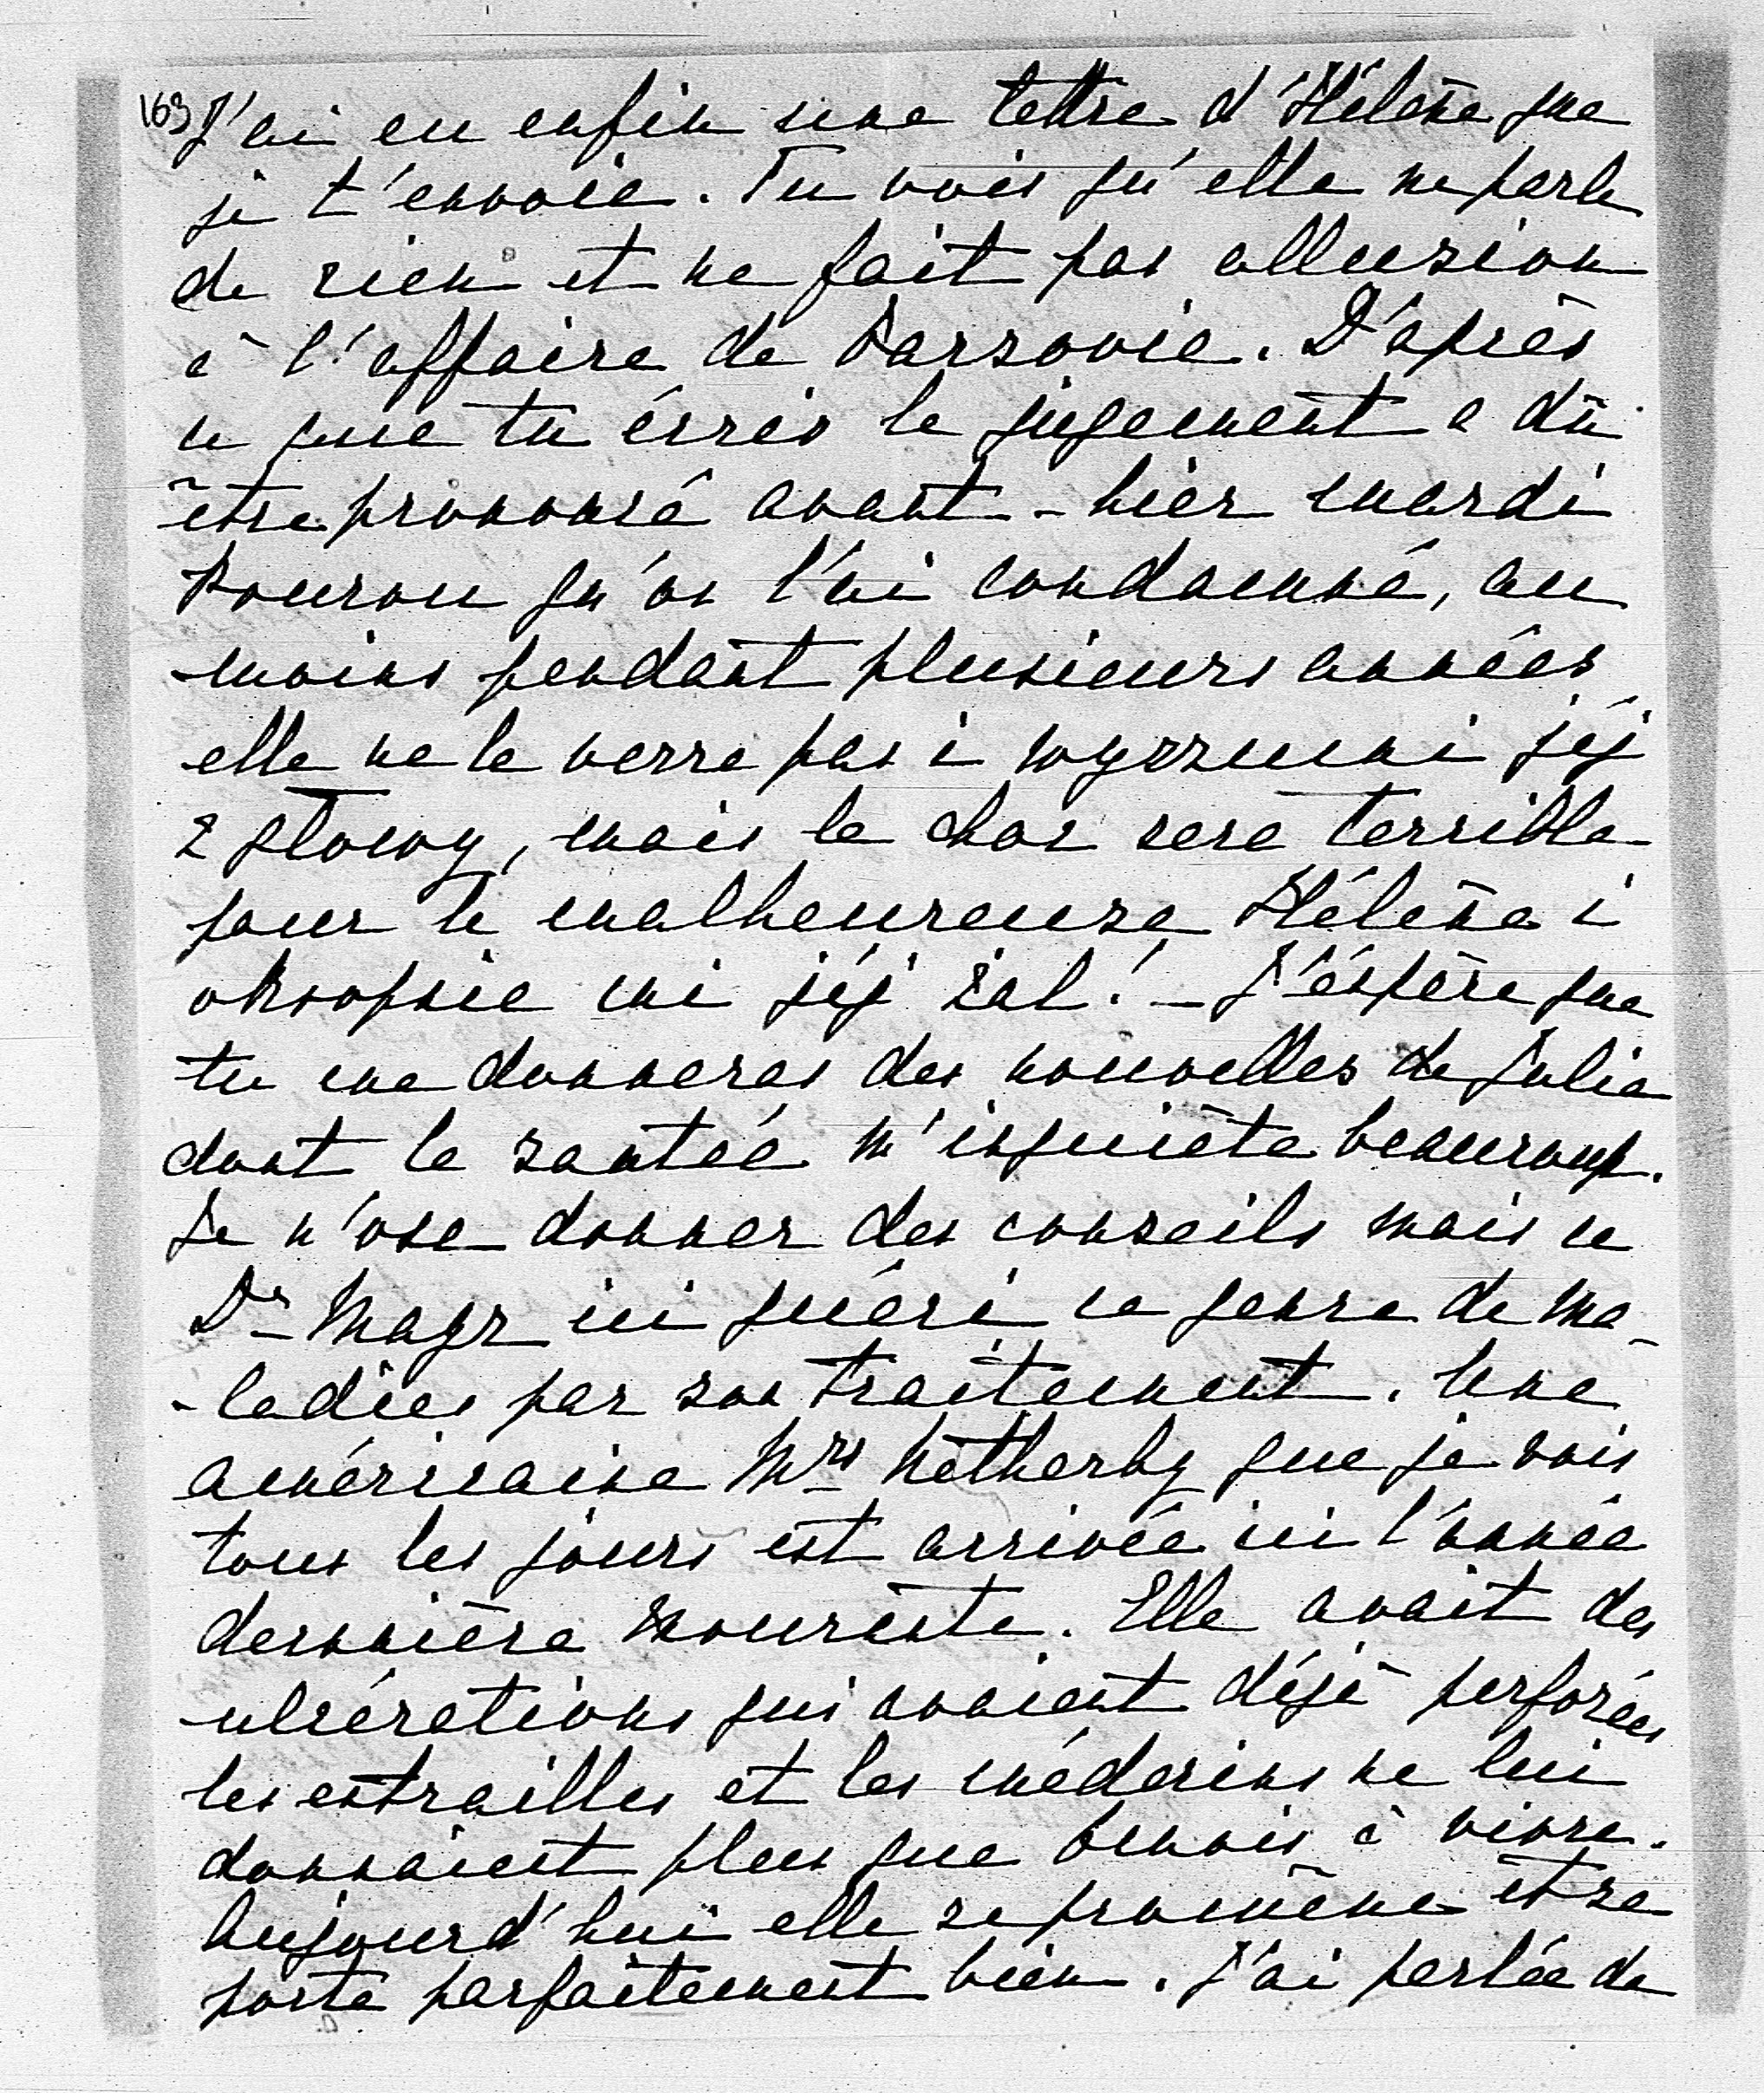 163 J'ai eu enfin une lettre d'Hélène que
je t'envoie. Tu vois qu'elle ne parle
de rien et ne fait pas allusion
à l'affaire de Varsovie. D'après
ce que tu écris le jugement a dû
être prononcé avant-hier mardi
Pourvu qu'on l'ai condamné, au
moins pendant plusieurs années
elle ne le verra pas i wyrzuci jéj
z głowy, mais le choc sera terrible
pour la malheureuse Hélène i
okropnie mi jéj żal! - J'éspère que
tu me donneras des nouvelles de Julia
dont la santée m'inquiète beaucoup.
Je n'ose donner des conseils mais ce
Dr Mayr ici guéri ce genre de ma-
-ladies par son traitement. Une
américaine Mrs Netherby que je vois
tous les jours est arrivée ici l'année
dernière mourante. Elle avait des
ulcérations qui avaient déjà perforées
les entrailles et les médecins ne lui
donnaient plus que 6 mois à vivre.
Aujourd'hui elle se promène et se
porte parfaitement bien. J'ai parlée de